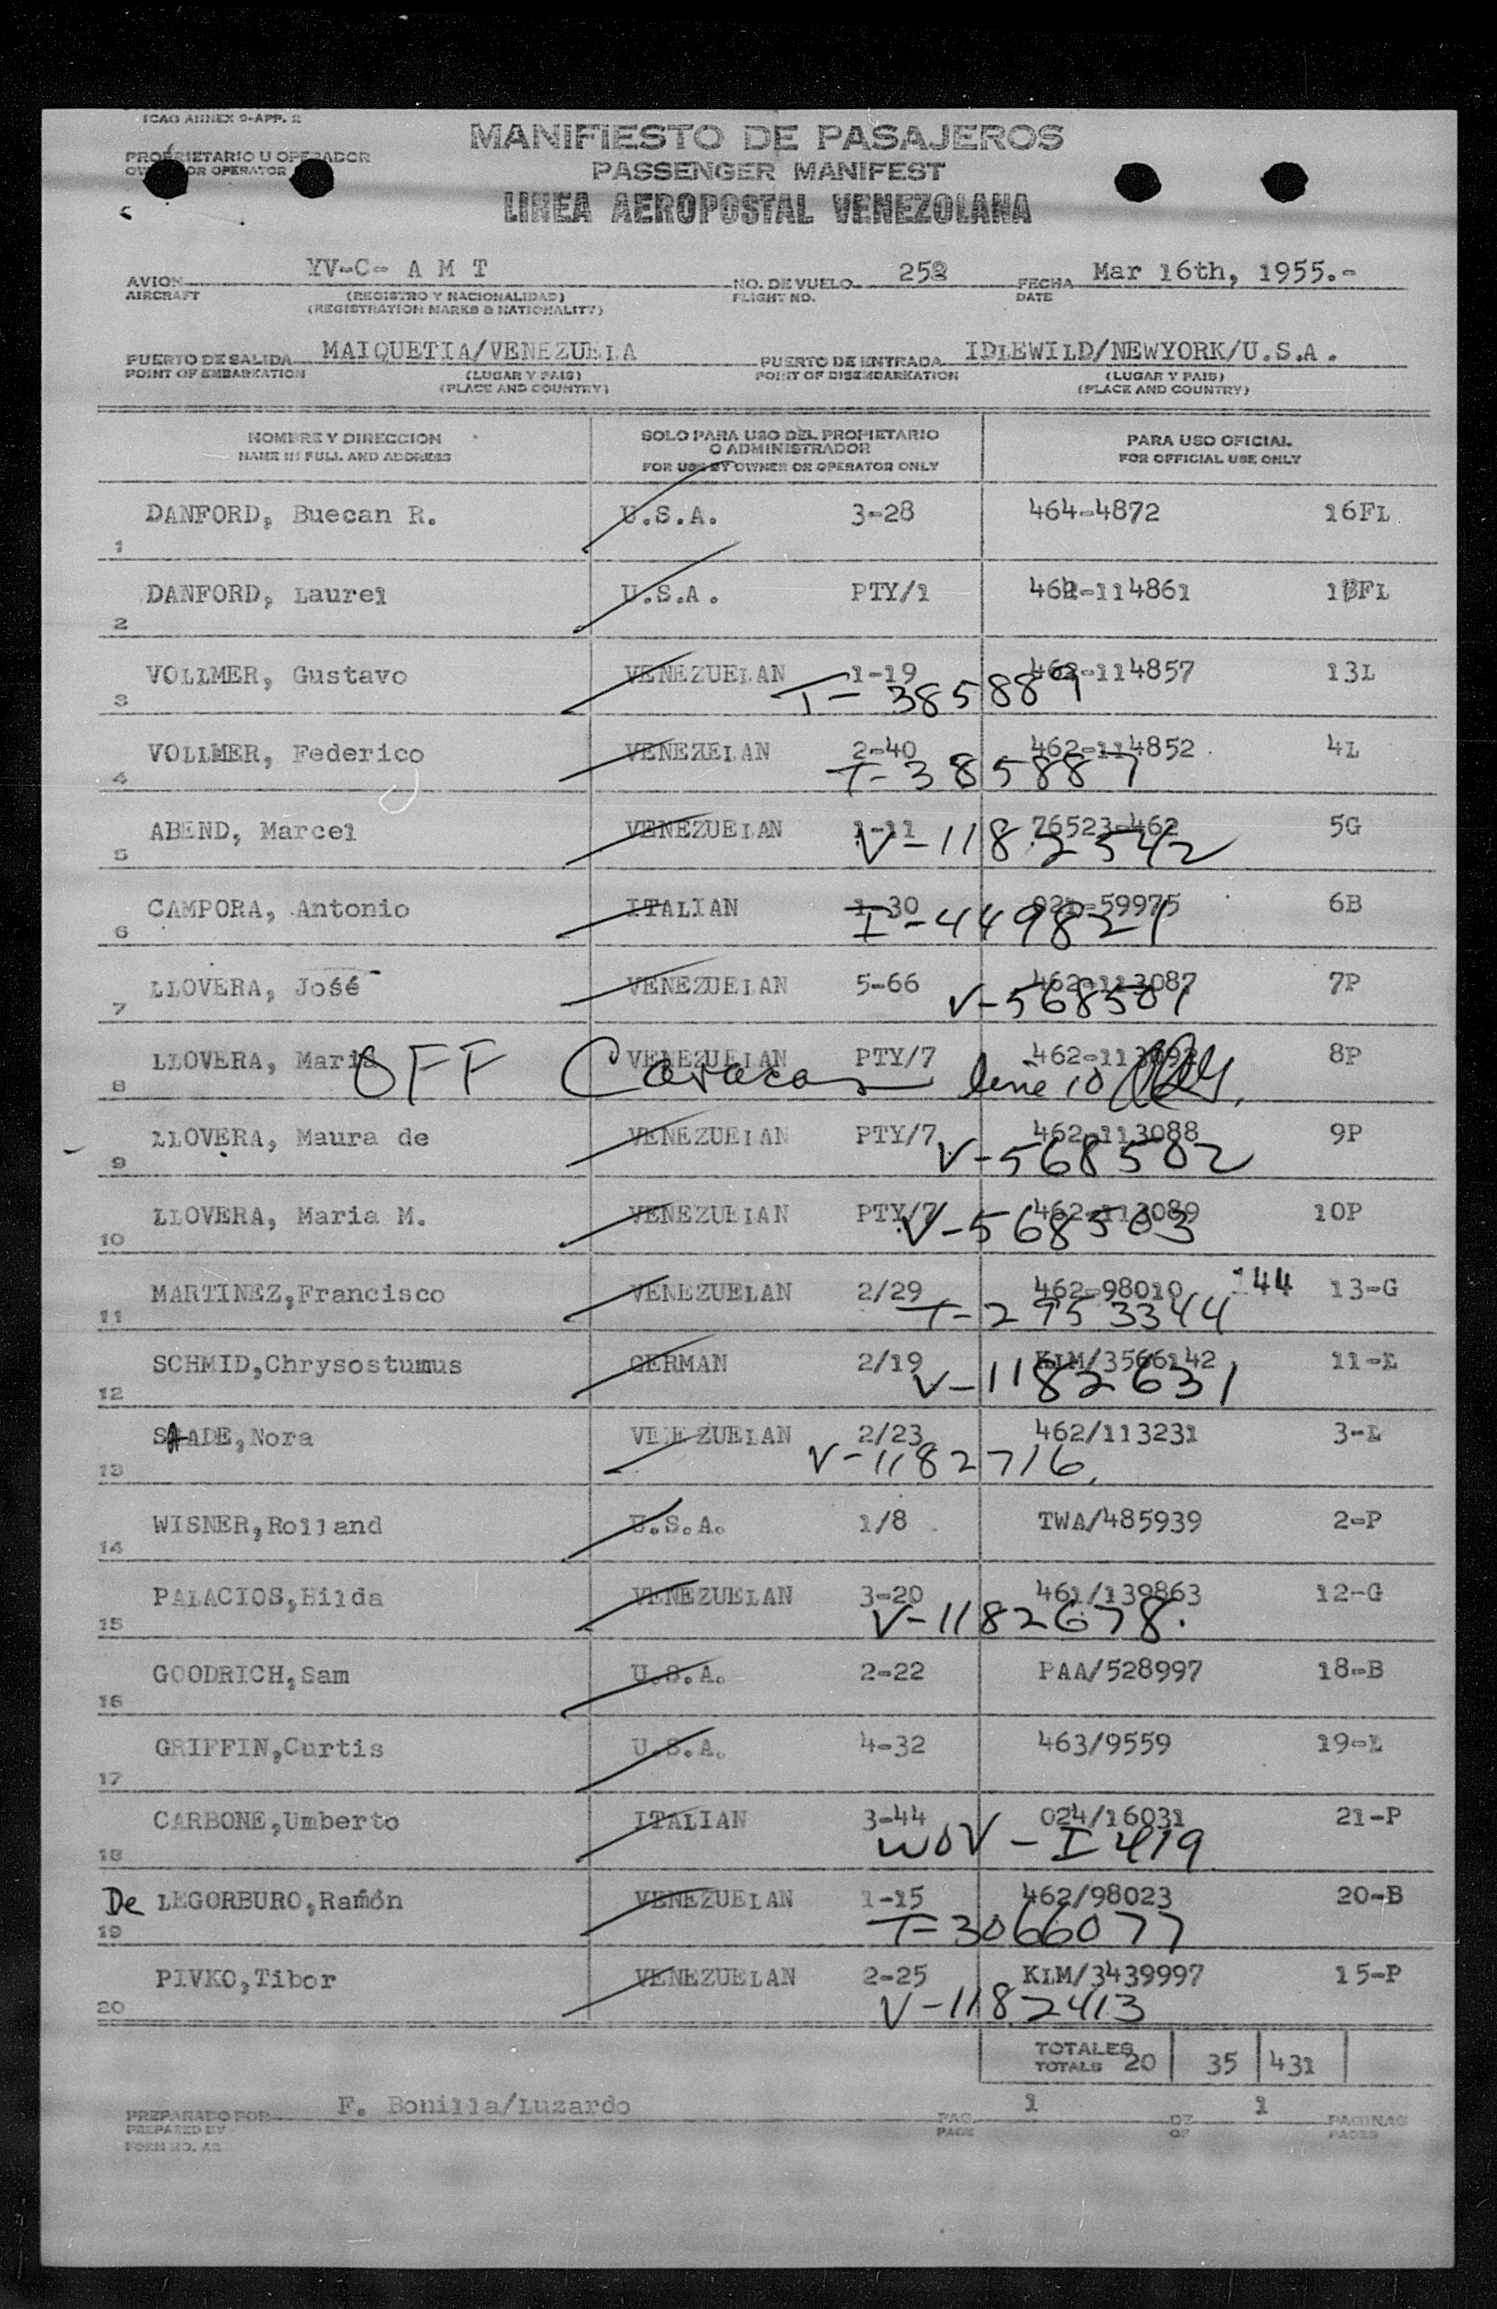 ICAO ANNEX 9-APP. 2
MANIFIESTO DE PASAJEROS
PROPRIETARIO U OPERADOR
PASSENGER MANIFEST
OR OPERATOR
LINEA AEROPOSTAL VENEZOLANA
AVION YV-C- A M T NO. DE VUELO 258 FECHA Mar 16th, 1955.-
AIRCRAFT (REGISTRO Y NACIONALIDAD) FLIGHT NO. DATE
(REGISTRATION MARKS & NATIONALITY)
PUERTO DE SALIDA MAIQUETIA/VENEZUELA PUERTO DE ENTRADA IDLEWILD/NEWYORK/U.S.A.
POINT OF EMBARKATION (LUGAR Y PAIS) POINT OF DISEMBARKATION (LUGAR Y PAIS)
(PLACE AND COUNTRY) (PLACE AND COUNTRY)
NOMBRE Y DIRECCION SOLO PARA USO DEL PROPIETARIO PARA USO OFICIAL
O ADMINISTRADOR
NAME IN FULL AND ADDRESS FOR USE BY OWNER OR OPERATOR ONLY FOR OFFICIAL USE ONLY
DANFORD, Buecan R. U.S.A. 3-28 464-4872 16FL
1
DANFORD, Laurel U.S.A. PTY/1 462-114861 FL
2
VOLLMER, Gustavo VENEZUELAN 1-19 462-114857 13L
3 T-3858889
VOLLMER, Federico VENEZELAN 2-40 462-114852 4L
4 T-3858887
ABEND, Marcel VENEZUELAN 1-11 76523-462 5G
5 V-1182542
CAMPORA, Antonio ITALIAN 1-30 021-59975 6B
6 I-449821
LLOVERA, José VENEZUELAN 5-66 462-113087 7P
7 V-568501
LLOVERA, Maria VENEZUELAN PTY/7 8P
8 OFF Caracas line 10
LLOVERA, Maura de VENEZUELAN PTY/7 462-113088 9P
9 V-568502
LLOVERA, Maria M. VENEZUELAN PTY/7 462-113089 10P
10 V-568503
MARTINEZ,Francisco VENEZUELAN 2/29 462-98010 144 13-G
11 T-2953344
SCHMID,Chrysostumus GERMAN 2/19 KLM/3566142 11-L
12 V-1182631
SAADE,Nora VENEZUELAN 2/23 462/113231 3-L
13 V-1182716.
WISNER,Rolland U.S.A. 1/8 TWA/485939 2-P
14
PALACIOS,Hilda VENEZUELAN 3-20 461/139863 12-G
15 V-1182678.
GOODRICH,Sam U.S.A. 2-22 PAA/528997 18-B
16
GRIFFIN,Curtis U.S.A. 4-32 463/9559 19-L
17
CARBONE,Umberto ITALIAN 3-44 024/16031 21-P
18 WOV-I419
De LEGORBURO,Ramón VENEZUELAN 1-15 462/98023 20-B
19 T-3066077
PIVKO,Tibor VENEZUELAN 2-25 KLM/3439997 15-P
20 V-1182413
TOTALES
TOTALS 20 35 431
PREPARADO POR F. Bonilla/Luzardo PAG. 1 DE 1 PAGINAS
PREPARED BY PAGE OF PAGES
FORM NO. A2